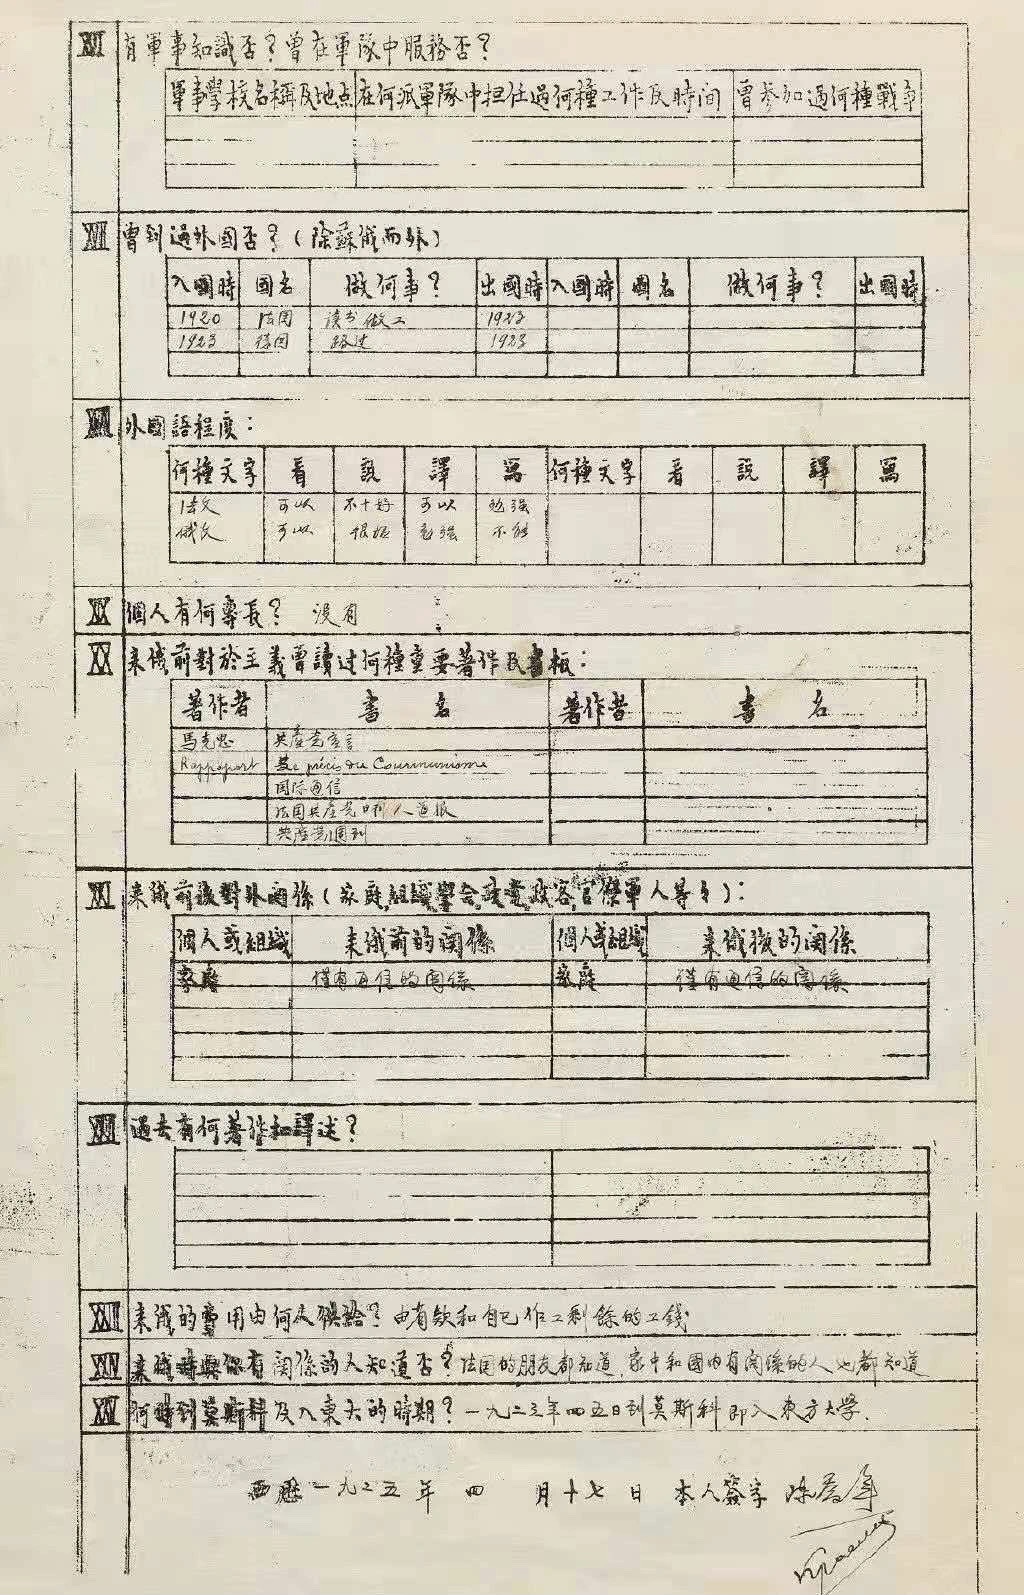 XVI 有軍事知識否？曾在軍隊中服務否？
軍事學校名稱及地点 在何派軍隊中担任過何種工作及時间 曾參加過何種戰争
XVII 曾到過外國否？（除蘇俄而外）
入國時 國名 做何事？ 出國時 入國時 國名 做何事？ 出國時
1920 法国 读书做工 1923
1923 德国 路过 1923
XVIII 外國語程度：
何種文字 看 説 譯 寫 何種文字 看 説 譯 寫
法文 可以 不十好 可以 勉强
俄文 可以 很坏 勉强 不能
XIX 個人有何專長？ 没有
XX 来俄前對於主義曾讀过何種重要著作及書板：
著作者 書名 著作者 書名
馬克思 共産党宣言
Rappoport précis du Communisme
国际通信
法国共産党 人道报
共産党週刊
XXI 来俄前後對外関係（家庭,組織,學会,政党,政客,官僚軍人等々）：
個人或組織 来俄前的関係 個人或組織 来俄後的関係
家庭 僅有通信的関係 家庭 僅有通信的関係
XXII 過去有何著作和譯述？
XXIII 来俄的費用由何處供給？ 由 和自己作工剩餘的工錢
XXIV 来俄時與你有関係的人知道否？ 法国的朋友都知道,家中和國内有関係的人也都知道
XXV 何時到莫斯科及入東大的時期？ 一九二三年四 五日到莫斯科即入東方大學.
西歷一九二五年 四 月十七日 本人簽字 陈喬年
Красин